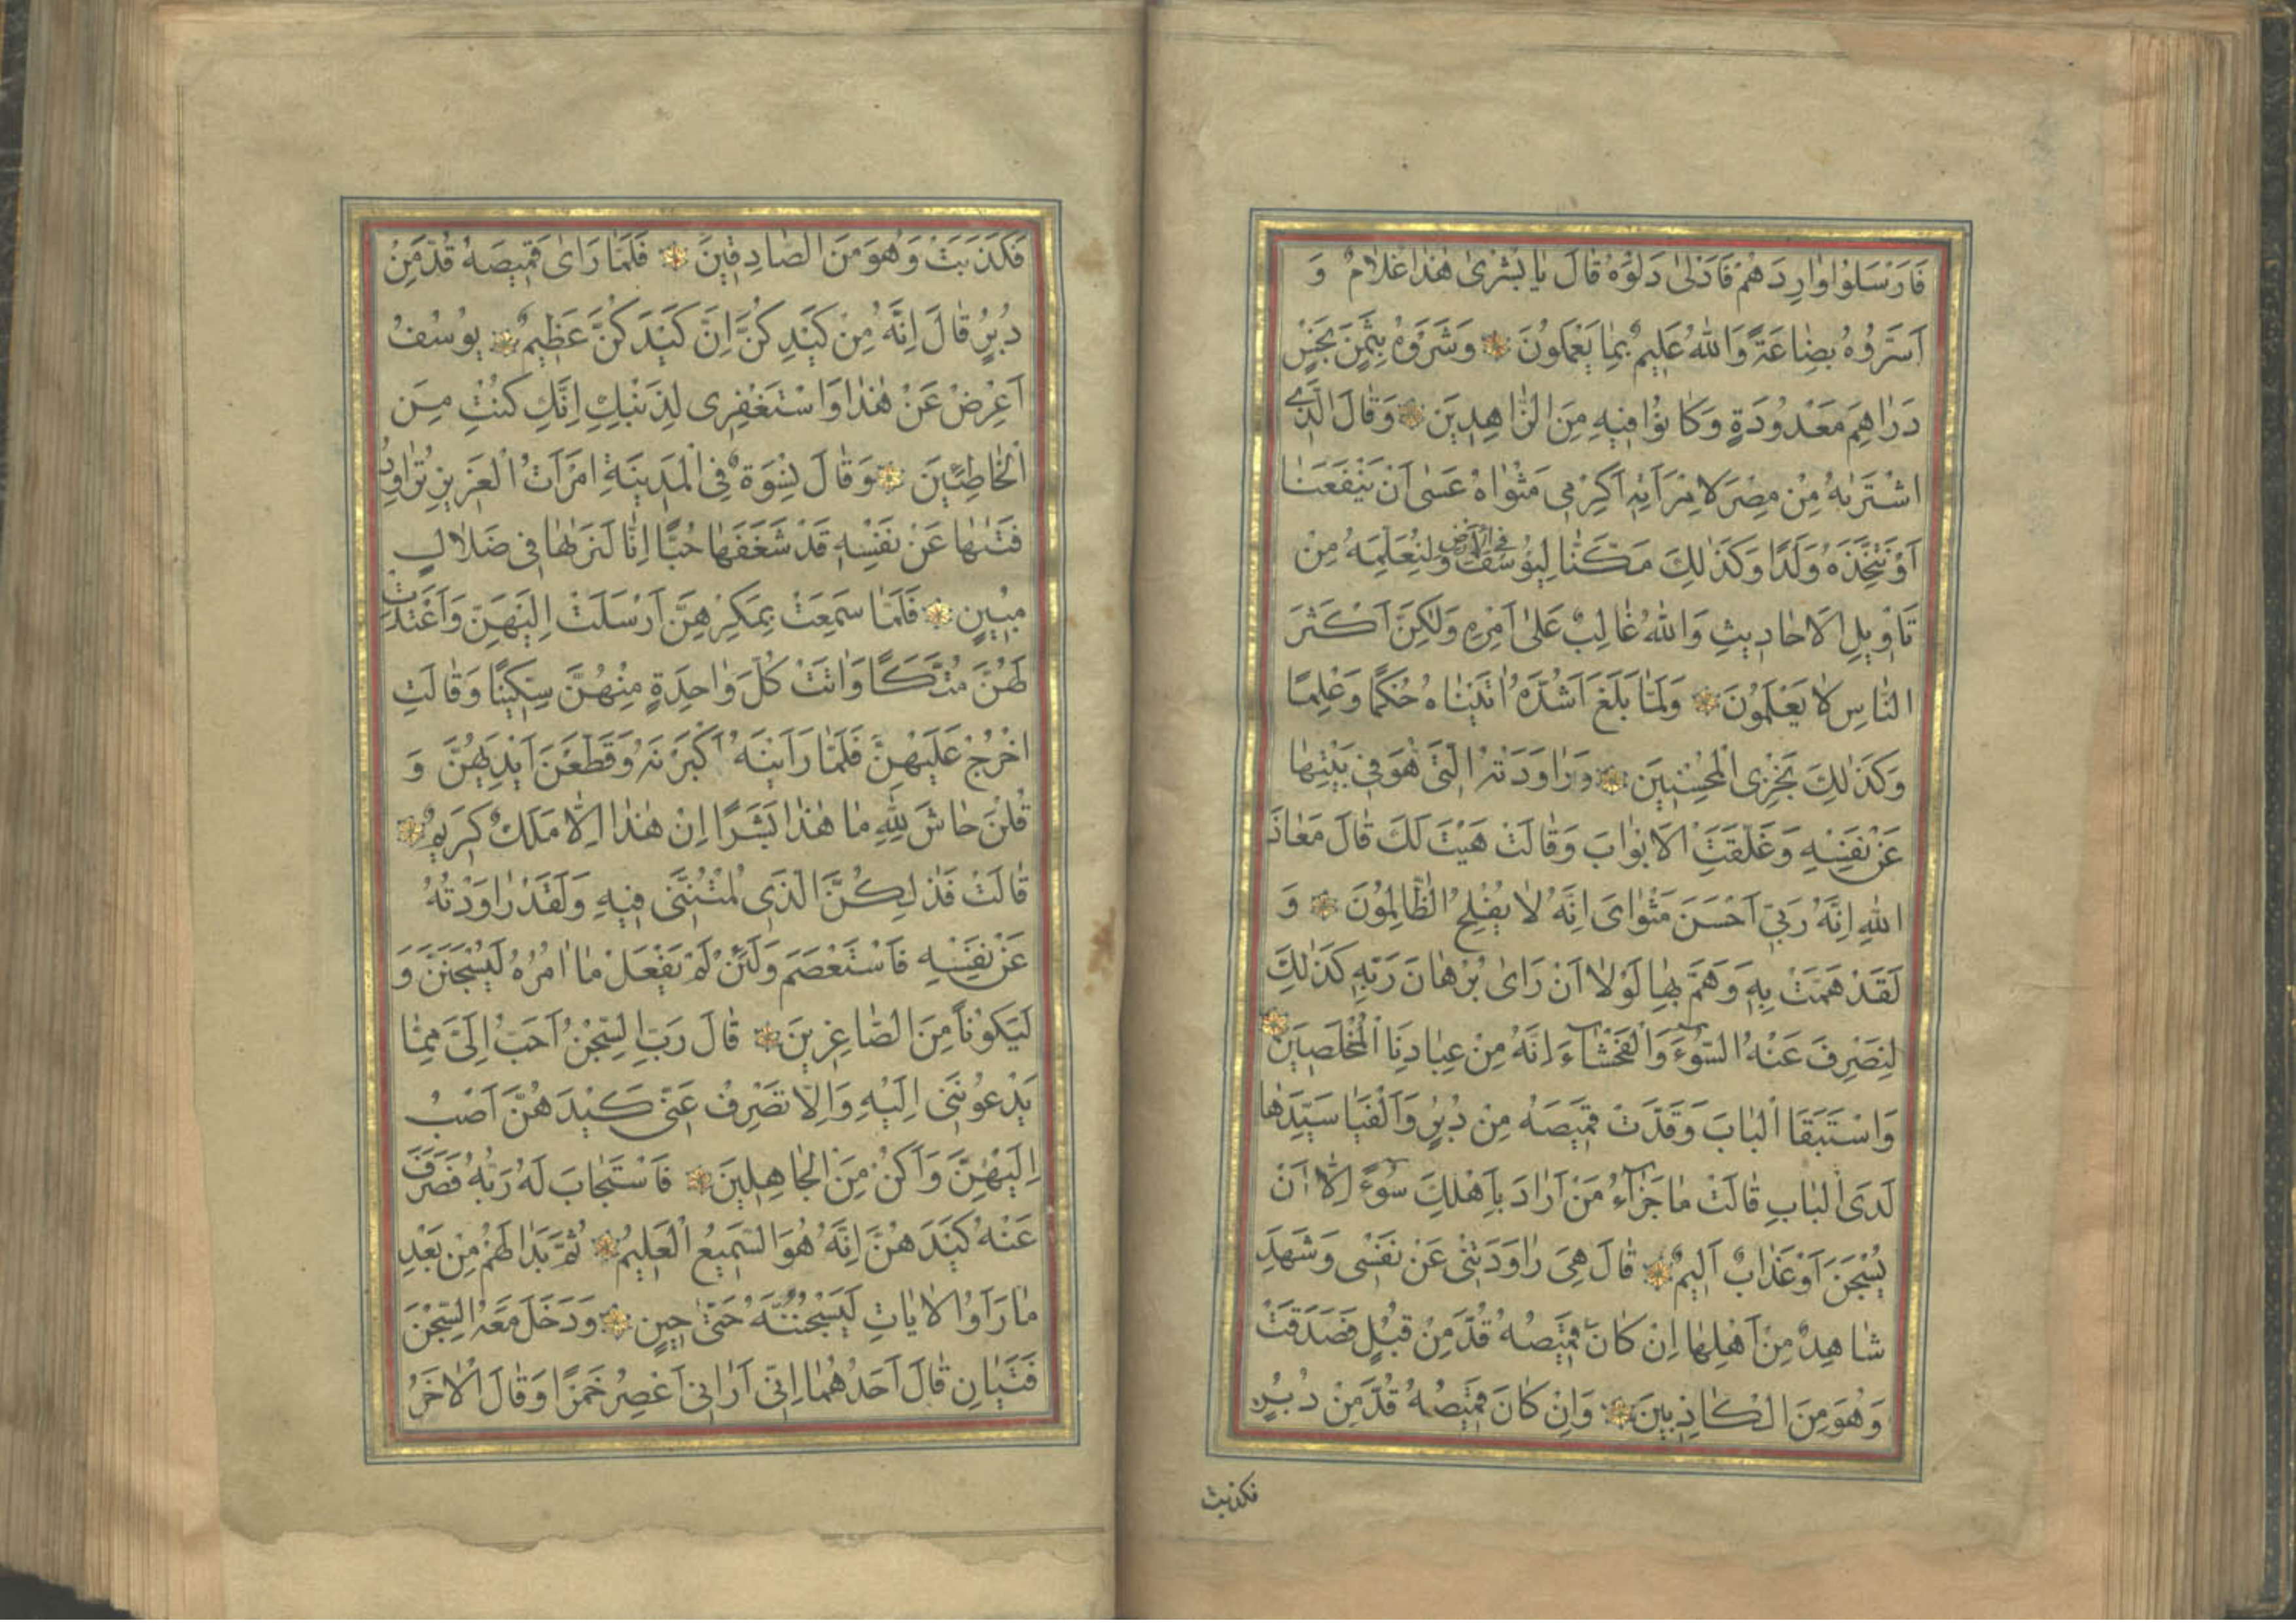 فَاَرْسَلُوا وٰارِدَهُمْ فَاَدْلىٰ دَلْوَهُ قٰالَ يٰا بُشْرىٰ هٰذٰا غُلٰامٌ وَ
اَسَرُّوهُ بِضٰاعَةً وَاللّٰهُ عَلِيمٌ بِمٰا يَعْمَلُونَ وَشَرَوْهُ بِثَمَنٍ بَخْسٍ
دَرٰاهِمَ مَعْدُودَةٍ وَكٰانُوا فِيهِ مِنَ الزّٰاهِدِينَ وَقٰالَ الَّذِي
اشْتَرٰيهُ مِنْ مِصْرَ لِامْرَاَتِهِ اَكْرِمِي مَثْوٰاهُ عَسىٰ اَنْ يَنْفَعَنٰا
اَوْ نَتَّخِذَهُ وَلَدًا وَكَذٰلِكَ مَكَّنّٰا لِيُوسُفَ فِي الْاَرْضِ وَلِنُعَلِّمَهُ مِنْ
تَاْوِيلِ الْاَحٰادِيثِ وَاللّٰهُ غٰالِبٌ عَلىٰ اَمْرِهِ وَلٰكِنَّ اَكْثَرَ
النّٰاسِ لٰا يَعْلَمُونَ وَلَمّٰا بَلَغَ اَشُدَّهُ اٰتَيْنٰاهُ حُكْمًا وَعِلْمًا
وَكَذٰلِكَ نَجْزِى الْمُحْسِنِينَ وَرٰاوَدَتْهُ الَّتِي هُوَ فِي بَيْتِهٰا
عَنْ نَفْسِهِ وَغَلَّقَتِ الْاَبْوٰابَ وَقٰالَتْ هَيْتَ لَكَ قٰالَ مَعٰاذَ
اللّٰهِ اِنَّهُ رَبِّي اَحْسَنَ مَثْوٰاىَ اِنَّهُ لٰا يُفْلِحُ الظّٰالِمُونَ وَ
لَقَدْ هَمَّتْ بِهِ وَهَمَّ بِهٰا لَوْلٰا اَنْ رَاىٰ بُرْهٰانَ رَبِّهِ كَذٰلِكَ
لِنَصْرِفَ عَنْهُ السُّوٓءَ وَالْفَحْشٰآءَ اِنَّهُ مِنْ عِبٰادِنَا الْمُخْلَصِينَ
وَاسْتَبَقَا الْبٰابَ وَقَدَّتْ قَمِيصَهُ مِنْ دُبُرٍ وَاَلْفَيٰا سَيِّدَهٰا
لَدَى الْبٰابِ قٰالَتْ مٰا جَزٰآءُ مَنْ اَرٰادَ بِاَهْلِكَ سُوٓءً اِلّٰا اَنْ
يُسْجَنَ اَوْ عَذٰابٌ اَلِيمٌ قٰالَ هِيَ رٰاوَدَتْنِي عَنْ نَفْسِي وَشَهِدَ
شٰاهِدٌ مِنْ اَهْلِهٰا اِنْ كٰانَ قَمِيصُهُ قُدَّ مِنْ قُبُلٍ فَصَدَقَتْ
وَهُوَ مِنَ الْكٰاذِبِينَ وَاِنْ كٰانَ قَمِيصُهُ قُدَّ مِنْ دُبُرٍ
فكذبت
فَكَذَبَتْ وَهُوَ مِنَ الصّٰادِقِينَ فَلَمّٰا رَاىٰ قَمِيصَهُ قُدَّ مِنْ
دُبُرٍ قٰالَ اِنَّهُ مِنْ كَيْدِكُنَّ اِنَّ كَيْدَكُنَّ عَظِيمٌ يُوسُفُ
اَعْرِضْ عَنْ هٰذٰا وَاسْتَغْفِرِى لِذَنْبِكِ اِنَّكِ كُنْتِ مِنَ
الْخٰاطِئِينَ وَقٰالَ نِسْوَةٌ فِي الْمَدِينَةِ امْرَاَتُ الْعَزِيزِ تُرٰاوِدُ
فَتٰيهٰا عَنْ نَفْسِهِ قَدْ شَغَفَهٰا حُبًّا اِنّٰا لَنَرٰيهٰا فِي ضَلٰالٍ
مُبِينٍ فَلَمّٰا سَمِعَتْ بِمَكْرِهِنَّ اَرْسَلَتْ اِلَيْهِنَّ وَاَعْتَدَتْ
لَهُنَّ مُتَّكَـًٔا وَاٰتَتْ كُلَّ وٰاحِدَةٍ مِنْهُنَّ سِكِّينًا وَقٰالَتِ
اخْرُجْ عَلَيْهِنَّ فَلَمّٰا رَاَيْنَهُ اَكْبَرْنَهُ وَقَطَّعْنَ اَيْدِيَهُنَّ وَ
قُلْنَ حٰاشَ لِلّٰهِ مٰا هٰذٰا بَشَرًا اِنْ هٰذٰا اِلّٰا مَلَكٌ كَرِيمٌ
قٰالَتْ فَذٰلِكُنَّ الَّذِى لُمْتُنَّنِي فِيهِ وَلَقَدْ رٰاوَدْتُهُ
عَنْ نَفْسِهِ فَاسْتَعْصَمَ وَلَئِنْ لَمْ يَفْعَلْ مٰا اٰمُرُهُ لَيُسْجَنَنَّ وَ
لَيَكُونًا مِنَ الصّٰاغِرِينَ قٰالَ رَبِّ السِّجْنُ اَحَبُّ اِلَيَّ مِمّٰا
يَدْعُونَنِي اِلَيْهِ وَاِلّٰا تَصْرِفْ عَنِّي كَيْدَهُنَّ اَصْبُ
اِلَيْهِنَّ وَاَكُنْ مِنَ الْجٰاهِلِينَ فَاسْتَجٰابَ لَهُ رَبُّهُ فَصَرَفَ
عَنْهُ كَيْدَهُنَّ اِنَّهُ هُوَ السَّمِيعُ الْعَلِيمُ ثُمَّ بَدٰا لَهُمْ مِنْ بَعْدِ
مٰا رَاَوُا الْاٰيٰاتِ لَيَسْجُنُنَّهُ حَتّىٰ حِينٍ وَدَخَلَ مَعَهُ السِّجْنَ
فَتَيٰانِ قٰالَ اَحَدُهُمٰا اِنِّي اَرٰانِي اَعْصِرُ خَمْرًا وَقٰالَ الْاٰخَرُ